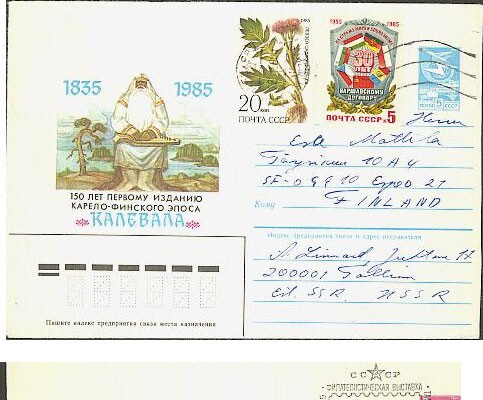 1835 1985
150 ЛЕТ ПЕРВОМУ ИЗДАНИЮ
КАРЕЛО-ФИНСКОГО ЭПОСА
КАЛЕВАЛА
Пишите индекс предприятия связи места назначения
1985
20 коп
ПОЧТА СССР
1955 1985
30 ЛЕТ
ВАРШАВСКОМУ
ДОГОВОРУ
ПОЧТА СССР к5
ПОЧТА СССР
5
Esa Mattila
10 A 4
SF-02210 Espoo 21
Кому FINLAND
Индекс предприятия связи и адрес отправителя
200001 Tallinn
Est. SSR, USSR
СССР
ФИЛАТЕЛИСТИЧЕСКАЯ ВЫСТАВКА